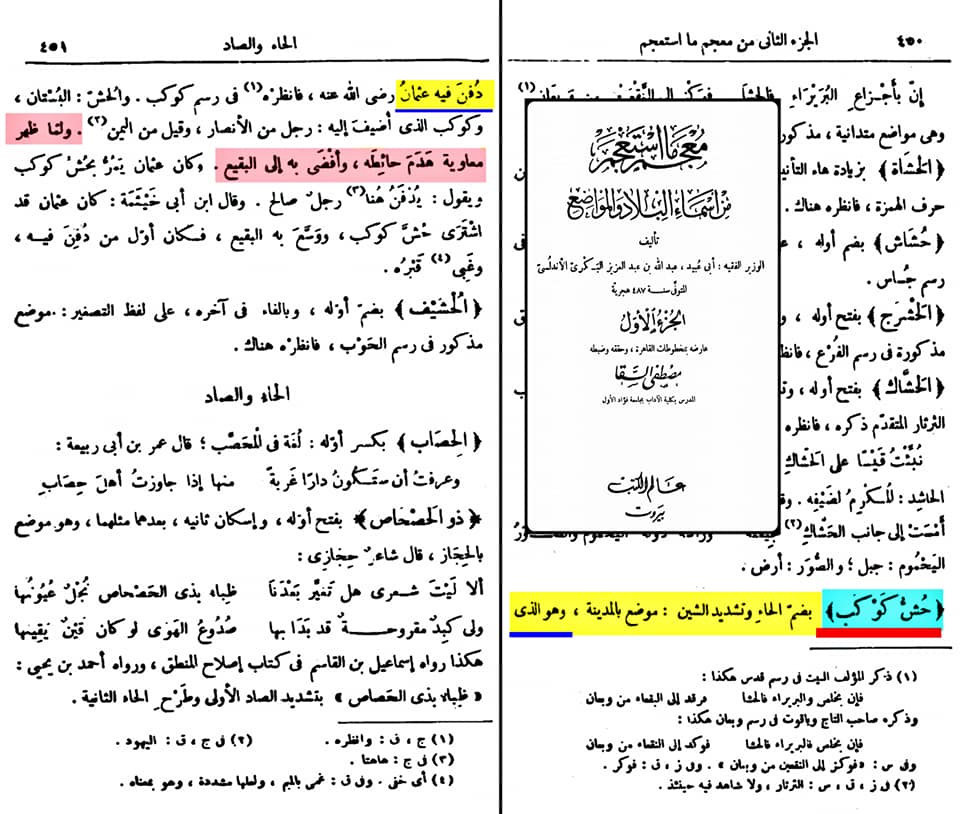 ٤٥٠
الجزء الثانى من معجم ما استعجم
إنّ بأجزاع البُرَيْراء فالحشا
وهى مواضع متدانية ، مذكور
﴿ الحَشَاة ﴾ بزيادة هاء التأنيث
حرف الهمزة ، فانظره هناك .
﴿ حُشَاش ﴾ بضم أوله ، ع
رسم جُساس .
﴿ الحَشْرَج ﴾ بفتح أوله ، و
مذكورة فى رسم الفُرْع ، فانظ
﴿ الحَشَّاك ﴾ بفتح أوله ، وتش
الثرثار المتقدّم ذكره ، فانظره
نُبِّئْتُ قَيْسًا على الحَشَّاكِ
الحاشد : للمُكرِمُ لضَيْفِه . وق
أَمْسَتْ إلى جانب الحَشَّاكِ (٢)
اليَحْموم : جبل ؛ والصُّوَر : أرض .
﴿ حُشُّ كَوْكَب ﴾ بضمّ الحاء وتشديد الشين : موضع بالمدينة ، وهو الذى
(١) ذكر المؤلف البيت فى رسم قدس هكذا :
فإن بخلص والبريراء فالحشا فرقد إلى البقعاء من وبعان
وذكره صاحب التاج وياقوت فى رسم وبعان هكذا :
فإن بخلص فالبريراء فالحشا فوكد إلى النقعاء من وبعان
وفى س : «فوكز إلى النقعين من وبعان» . وفى ز ، ق : فوكر .
(٢) فى ز ، ق ، س : الثرثار ، ولا شاهد فيه حينئذ .
مُعْجَم مَا اسْتَعْجَم
مِن أسمَاءِ البِلَاد وَالمواضِع
تأليف
الوزير الفقيه : أبى عُبيد ، عبد الله بن عبد العزيز البَكرىّ الأندلسىّ
المتوفى سنة ٤٨٧ هجريّة
الجزء الأول
عارضه بمخطوطات القاهرة ، وحققه وضبطه
مصطفى السقا
المدرس بكلية الآداب بجامعة فؤاد الأول
عالم الكتب
بيروت
الحاء والصاد
٤٥١
دُفنَ فيه عثمانُ رضى الله عنه ، فانظره (١) فى رسم كوكب . والحُشّ : البُسْتان ،
وكوكب الذى أضيفَ إليه : رجل من الأنصار ، وقيل من اليمن (٢) . ولمّا ظهر
معاوية هَدَمَ حائِطَه ، وأفْضَى به إلى البقيع . وكان عثمان يَمُرُّ بحُشّ كوكب
ويقول : يُدْفَنُ هُنا (٣) رجلٌ صالح . وقال ابن أبى خَيْثَمَة : كان عثمان قد
اشْتَرَى حُشّ كوكب ، ووَسَّعَ به البقيع ، فكان أوّل من دُفِنَ فيه ،
وغَبِى (٤) قَبْرُه .
﴿ الحُشَيْف ﴾ بضمّ أوّله ، وبالفاء فى آخره ، على لفظ التصغير : موضع
مذكور فى رسم الحَوْب ، فانظره هناك .
الحاء والصاد
﴿ الحِصَاب ﴾ بكسر أوّله : لُغَة فى المُحَصَّب ؛ قال عمر بن أبى ربيعة :
وعرفتُ أن ستكُونُ دارًا غَربةً منها إذا جاوزتُ أهلَ حِصَابِ
﴿ ذو الحَصْحَاص ﴾ بفتح أوّله ، وإسكان ثانيه ، بعدهما مثلهما ، وهو موضع
بالحِجاز ، قال شاعرٌ حِجازى :
ألا لَيْتَ شعرى هل تَغيَّر بَعْدَنا ظباءٌ بذى الحَصْحاص نُجْلٌ عُيُونُها
ولى كبِدٌ مقروحةٌ قد بَدَا بها صُدُوعُ الهَوَى لو كان قَيْنٌ يَقِينُها
هكذا رواه إسماعيل بن القاسم فى كتاب إصلاح المنطق ، ورواه أحمد بن يحيى :
« ظباءٌ بذى الحَصاص » بتشديد الصاد الأولى وطَرْحِ الحاء الثانية .
(١) ج ، ق : وانظره . (٢) فى ج ، ق : اليهود .
(٣) فى ج : هاهنا .
(٤) أى خفى . وفى ق : غمى بالميم ، ولعلها مشددة ، وهو بمعناه .